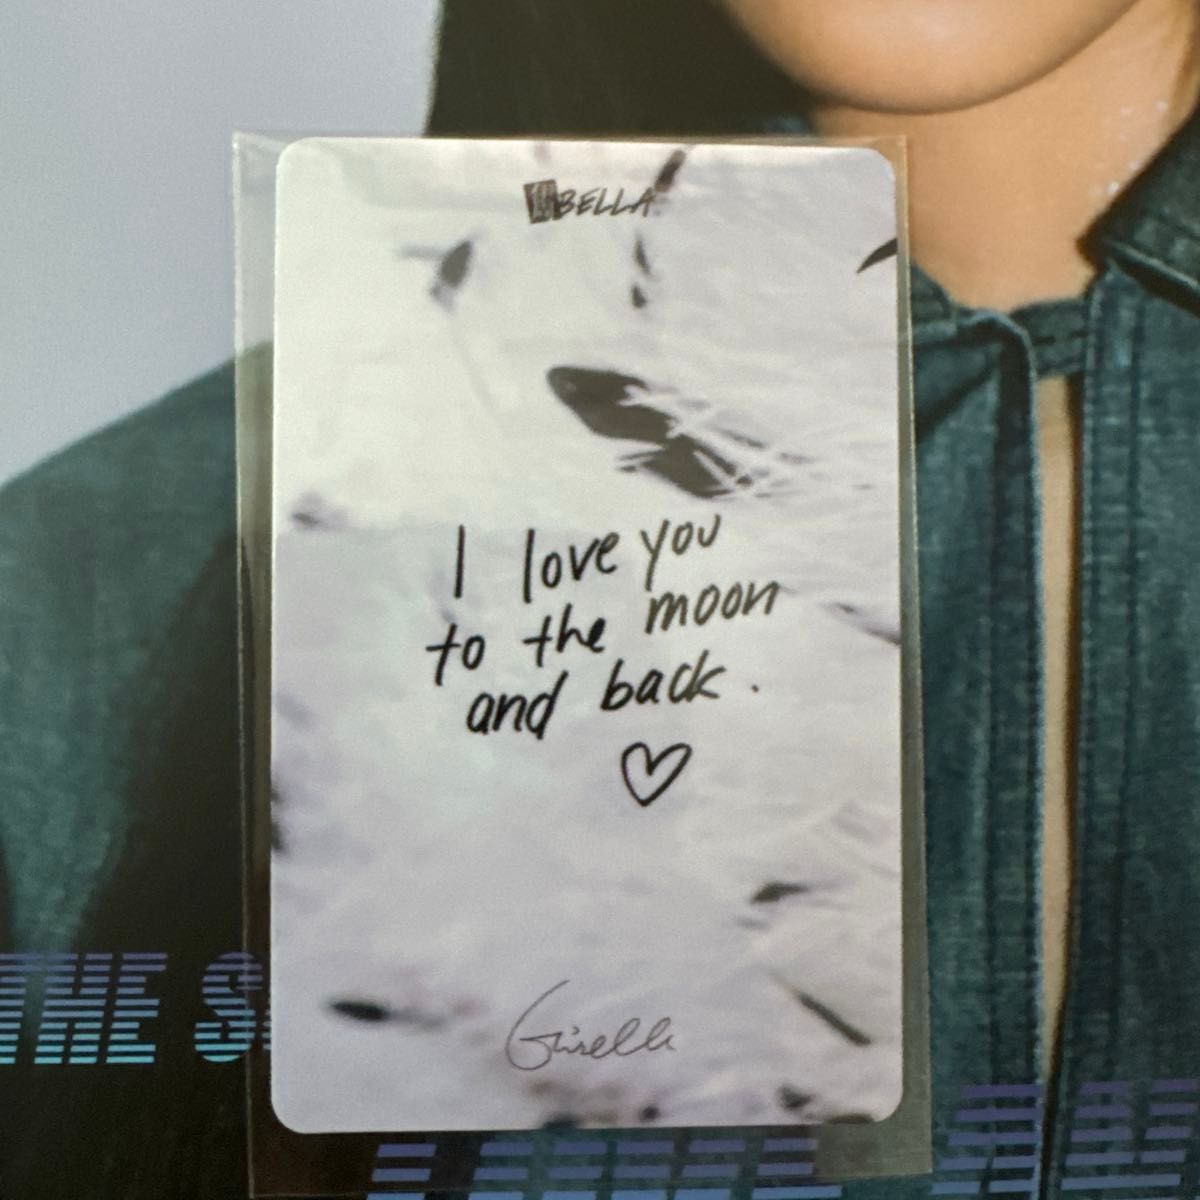 BELLA
I love you
to the moon
and back.
Giselle
THE S